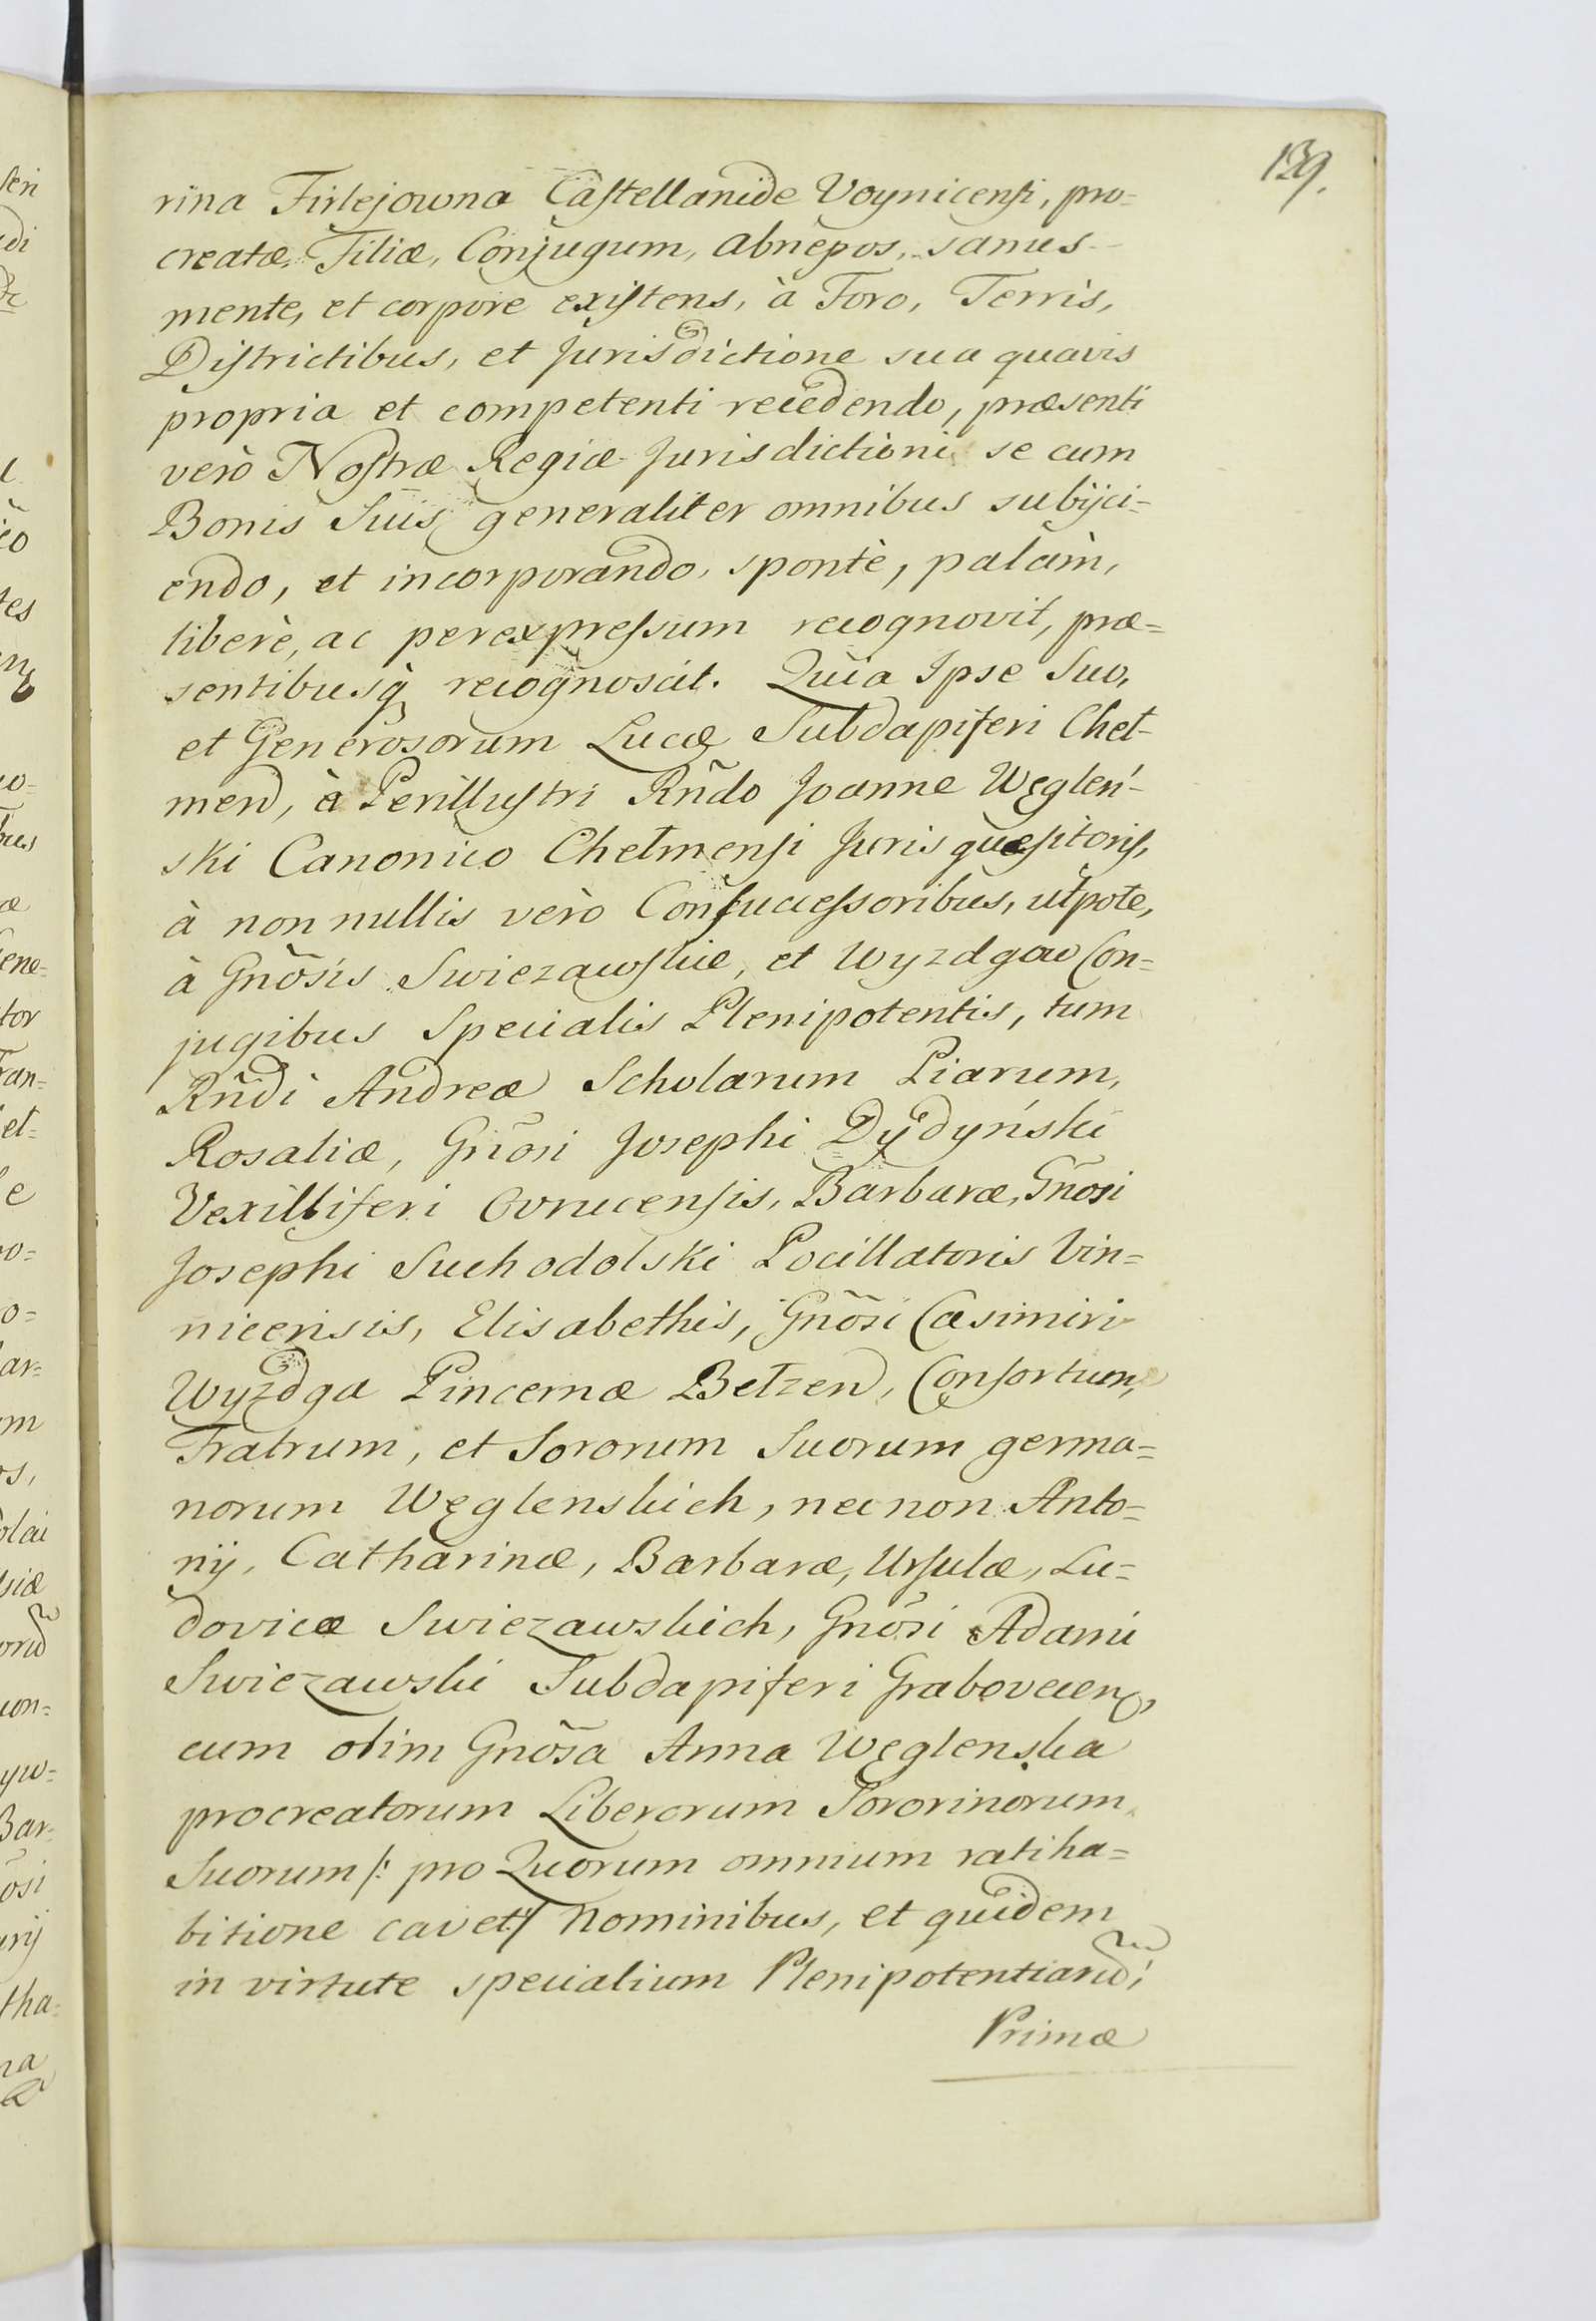 139.
rina Firlejowna Castellanide Voynicensi, pro=
creatæ, Filiæ, Conjugum, abnepos, sanus
mente, et corpore existens, à Foro, Terris,
Districtibus, et Jurisdictione sua quavis
propria et competenti recedendo, præsenti
verò Nostræ Regiæ Jurisdictioni se cum
Bonis Suis generaliter omnibus subijci=
endo, et incorporando, spontè, palàm,
liberè, ac perexpressum recognovit, præ=
sentibusq̃ recognoscit. Quia Ipse Suo,
et Generosorum Lucæ Subdapiferi Cheł-
men, à Perillustri Rñdo Joanne Węgleń-
ski Canonico Chełmensi Juris quæsitoris,
à non nullis verò Consuccessoribus, utpote,
à Gnõsis Swiezawskie, et Wyzdgow Con=
jugibus Specialis Plenipotentis, tum
Rñdi Andreæ Scholarum Piarum,
Rosaliæ, Gnõsi Josephi Dydyński
Vexilliferi Ovrucensis, Barbaræ, Gnõsi
Josephi Suchodolski Pocillatoris Vin=
nicensis, Elisabethis, Gnõsi Casimiri
Wyzdga Pincernæ Bełzen, Consortum,
Fratrum, et Sororum Suorum germa=
norum Węglenskich, nec non Anto=
nij, Catharinæ, Barbaræ, Ursulæ, Lu=
dovicæ Swiezawskich, Gnõsi Adami
Swiezawski Subdapiferi Grabovecen,
cum olim Gnõsa Anna Węglenska
procreatorum Liberorum Sororinorum
Suorum /: pro Quorum omnium ratiha=
bitione cavet :/ Nominibus, et quidem
in virtute specialium Plenipotentiarũ;
Primæ